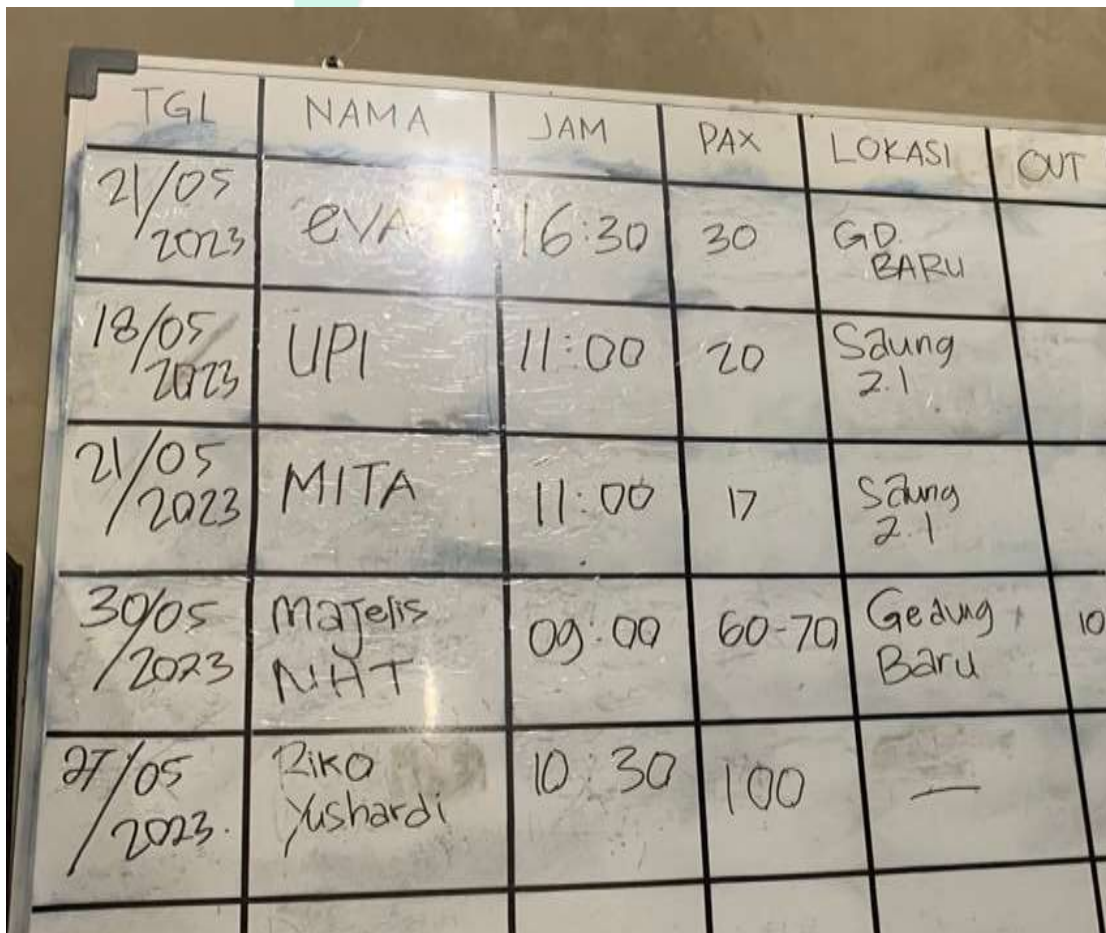 TGL NAMA JAM PAX LOKASI OUT
21/05 2023 eVA 16:30 30 GD. BARU
18/05 2023 UPI 11:00 20 Saung 2.1
21/05 2023 MITA 11:00 17 Saung 2.1
30/05 2023 Majelis NHT 09:00 60-70 Gedung Baru 10
27/05 2023. Riko Yushardi 10:30 100 —